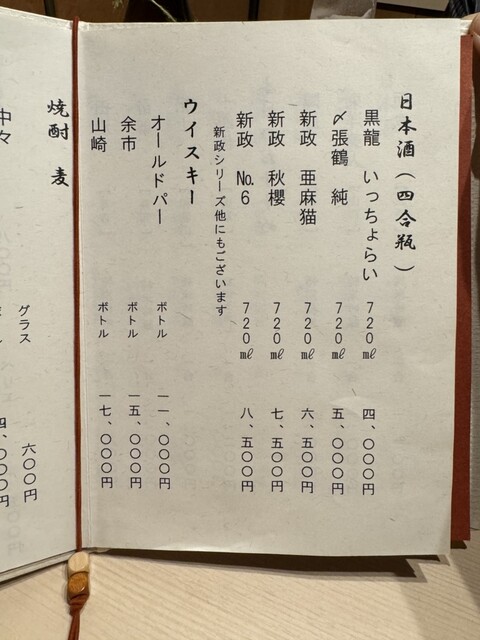 日本酒(四合瓶)
黒龍 いっちょらい 720㎖ 四、〇〇〇円
〆張鶴 純 720㎖ 五、〇〇〇円
新政 亜麻猫 720㎖ 六、五〇〇円
新政 秋櫻 720㎖ 七、五〇〇円
新政 №6 720㎖ 八、五〇〇円
新政シリーズ他にもございます
ウイスキー
オールドパー ボトル 一一、〇〇〇円
余市 ボトル 一五、〇〇〇円
山崎 ボトル 一七、〇〇〇円
焼酎 麦
中々 グラス 六〇〇円
四、〇〇〇円